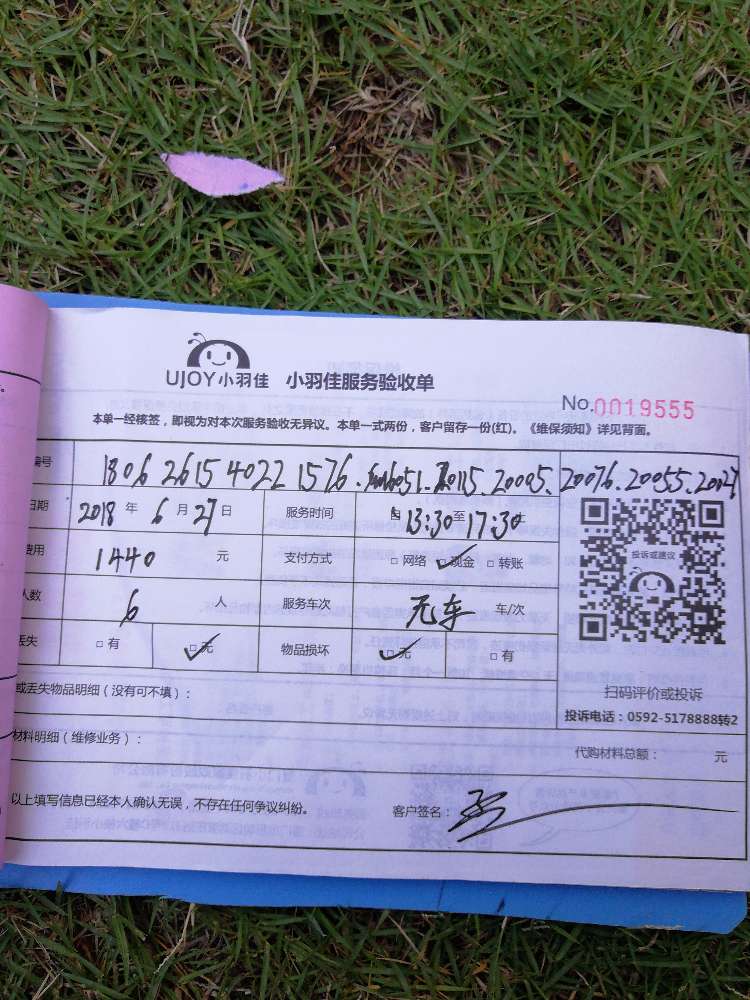 UJOY小羽佳 小羽佳服务验收单
No.0019555
本单一经核签，即视为对本次服务验收无异议。本单一式两份，客户留存一份(红)。《维保须知》详见背面。
编号 1806 2615 4022 1576. 20115. 20005. 20076. 20055.
日期 2018 年 6 月 27 日 服务时间 自 13:30 至 17:30
费用 1440 元 支付方式 □ 网络 ✓现金 □ 转账
人数 6 人 服务车次 无车 车/次
丢失 □ 有 □ 无 ✓ 物品损坏 □ 无 ✓ □ 有
投诉或建议
扫码评价或投诉
投诉电话：0592-5178888转2
或丢失物品明细（没有可不填）：
材料明细（维修业务）： 代购材料总额： 元
以上填写信息已经本人确认无误，不存在任何争议纠纷。 客户签名：